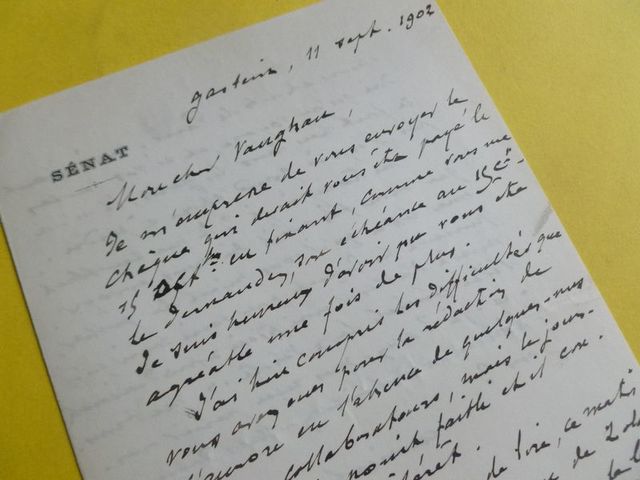 gastein, 11 sept. 1902
SÉNAT
Mon cher Vaughan,
Je m'empresse de vous envoyer le
chèque qui devait vous être payé le
15 en fixant, comme vous me
le demandez, son échéance au 15 8bre.
Je suis heureux d'avoir pu vous être
agréable une fois de plus.
J'ai bien compris les difficultés que
vous avez eues pour la rédaction de
l'aurore en l'absence de quelques-uns
collaborateurs, mais le jour-
point faibli et il con-
de foie, ce matin
de 2